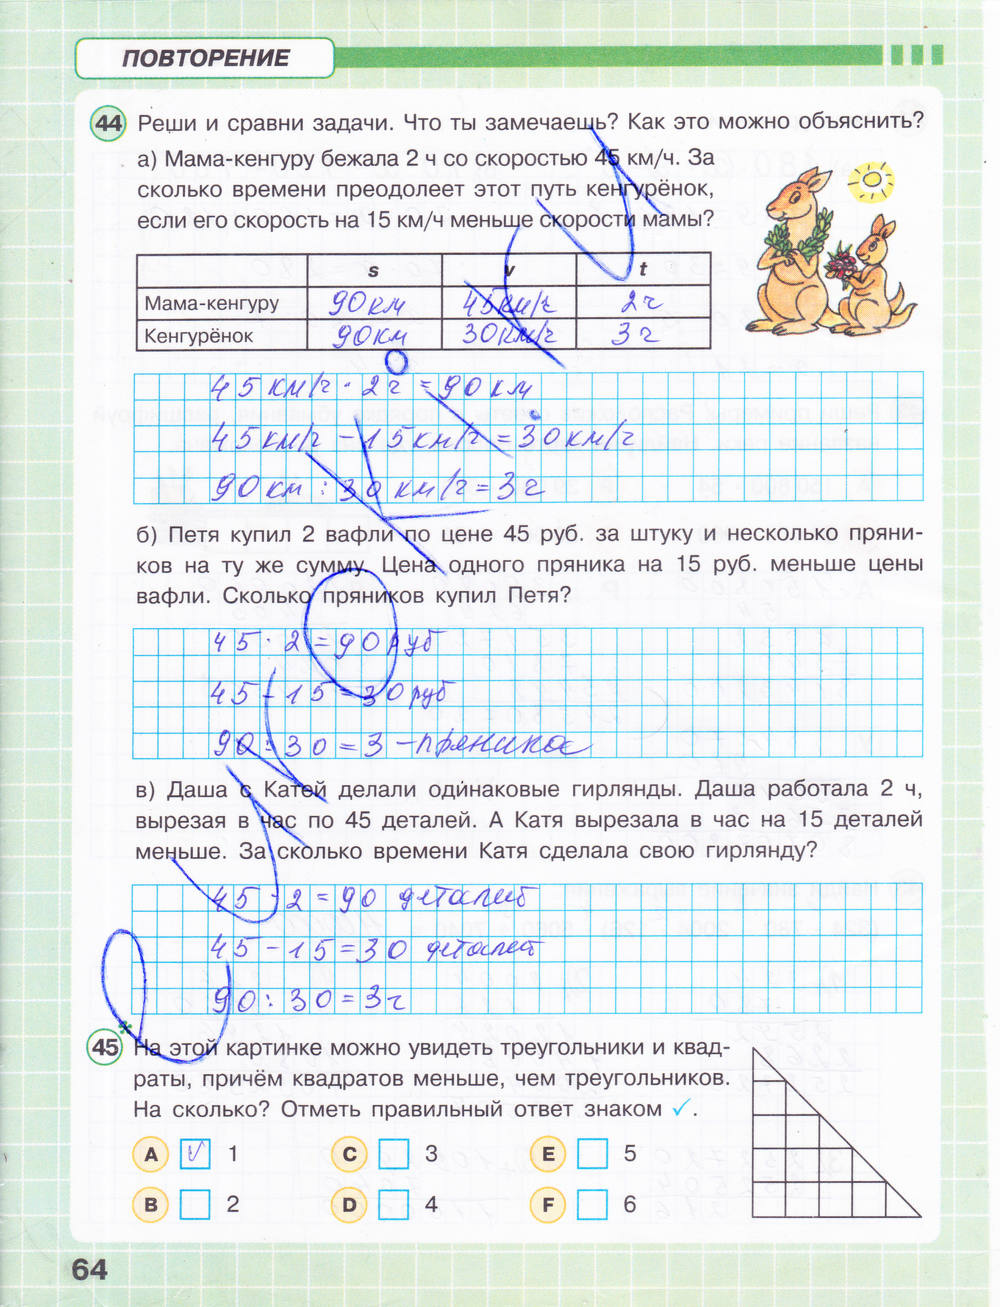 ПОВТОРЕНИЕ
44 Реши и сравни задачи. Что ты замечаешь? Как это можно объяснить?
а) Мама-кенгуру бежала 2 ч со скоростью 45 км/ч. За
сколько времени преодолеет этот путь кенгурёнок,
если его скорость на 15 км/ч меньше скорости мамы?
s v t
Мама-кенгуру 90 км 45 км/ч 2 ч
Кенгурёнок 90 км 30 км/ч 3 ч
45 км/ч · 2 ч = 90 км
45 км/ч - 15 км/ч = 30 км/ч
90 км : 30 км/ч = 3 ч
б) Петя купил 2 вафли по цене 45 руб. за штуку и несколько пряни-
ков на ту же сумму. Цена одного пряника на 15 руб. меньше цены
вафли. Сколько пряников купил Петя?
45 · 2 = 90 руб
45 - 15 = 30 руб
90 : 30 = 3 - пряника
в) Даша с Катей делали одинаковые гирлянды. Даша работала 2 ч,
вырезая в час по 45 деталей. А Катя вырезала в час на 15 деталей
меньше. За сколько времени Катя сделала свою гирлянду?
45 · 2 = 90 деталей
45 - 15 = 30 деталей
90 : 30 = 3 ч
45* На этой картинке можно увидеть треугольники и квад-
раты, причём квадратов меньше, чем треугольников.
На сколько? Отметь правильный ответ знаком ✓.
A ✓ 1 C 3 E 5
B 2 D 4 F 6
64